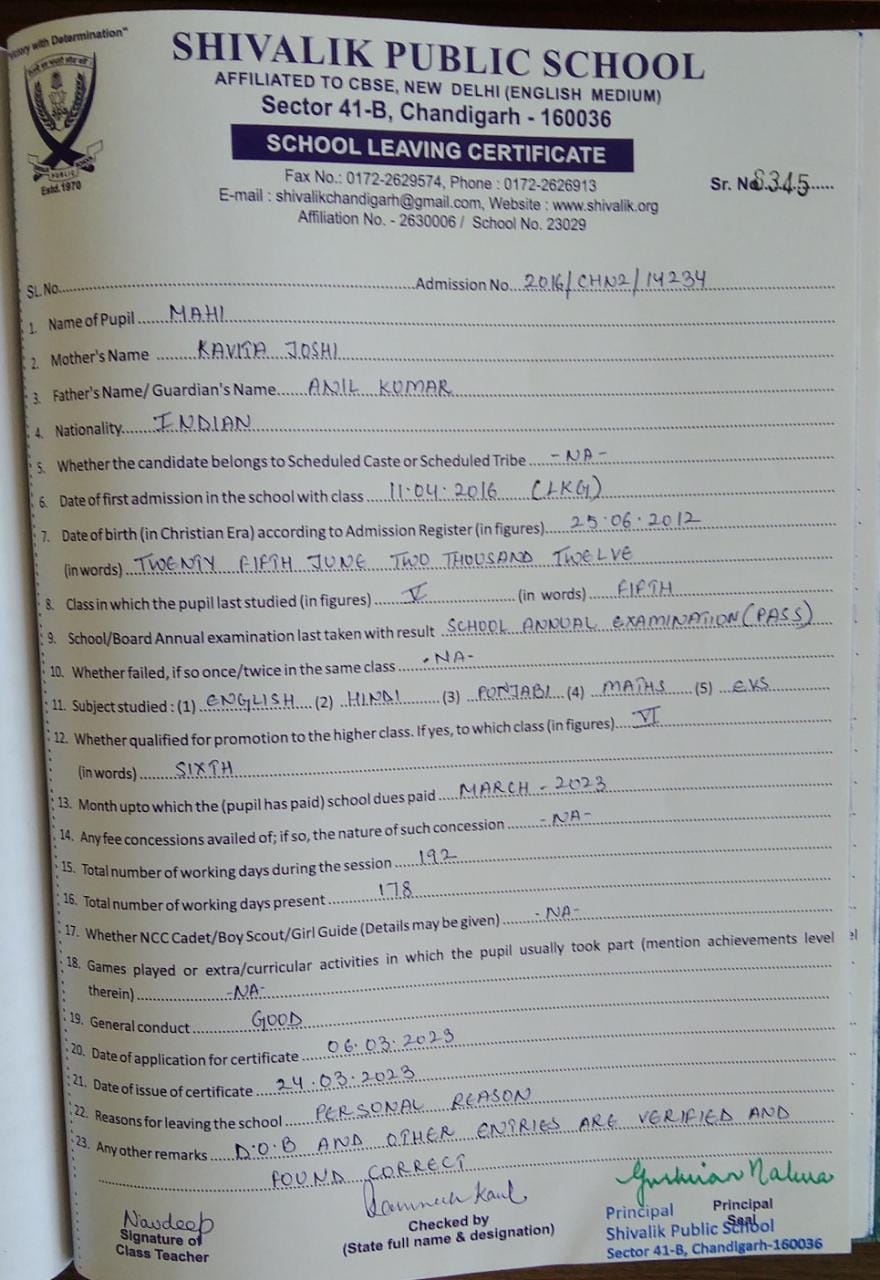 "Victory with Determination"
SHIVALIK PUBLIC SCHOOL
AFFILIATED TO CBSE, NEW DELHI (ENGLISH MEDIUM)
Sector 41-B, Chandigarh - 160036
SCHOOL LEAVING CERTIFICATE
PUBLIC
Estd.1970
Fax No.: 0172-2629574, Phone : 0172-2626913
Sr. No. 8345
E-mail : shivalikchandigarh@gmail.com, Website : www.shivalik.org
Affiliation No. - 2630006 / School No. 23029
SL.No. Admission No. 2016/CHN2/14234
1. Name of Pupil MAHI
2. Mother's Name KAVITA JOSHI
3. Father's Name/ Guardian's Name ANIL KUMAR
4. Nationality INDIAN
5. Whether the candidate belongs to Scheduled Caste or Scheduled Tribe -NA-
6. Date of first admission in the school with class 11.04.2016 (LKG)
7. Date of birth (in Christian Era) according to Admission Register (in figures) 25.06.2012
(in words) TWENTY FIFTH JUNE TWO THOUSAND TWELVE
8. Class in which the pupil last studied (in figures) V (in words) FIFTH
9. School/Board Annual examination last taken with result SCHOOL ANNUAL EXAMINATION (PASS)
10. Whether failed, if so once/twice in the same class -NA-
11. Subject studied : (1) ENGLISH (2) HINDI (3) PUNJABI (4) MATHS (5) EVS
12. Whether qualified for promotion to the higher class. If yes, to which class (in figures) VI
(in words) SIXTH
13. Month upto which the (pupil has paid) school dues paid MARCH - 2023
14. Any fee concessions availed of; if so, the nature of such concession -NA-
15. Total number of working days during the session 192
16. Total number of working days present 178
17. Whether NCC Cadet/Boy Scout/Girl Guide (Details may be given) -NA-
18. Games played or extra/curricular activities in which the pupil usually took part (mention achievements level
therein) -NA-
19. General conduct GOOD
20. Date of application for certificate 06.03.2023
21. Date of issue of certificate 24.03.2023
22. Reasons for leaving the school PERSONAL REASON
23. Any other remarks D.O.B AND OTHER ENTRIES ARE VERIFIED AND
FOUND CORRECT
Navdeep
Signature of
Class Teacher
Checked by
(State full name & designation)
Principal
Seal
Principal
Shivalik Public School
Sector 41-B, Chandigarh-160036